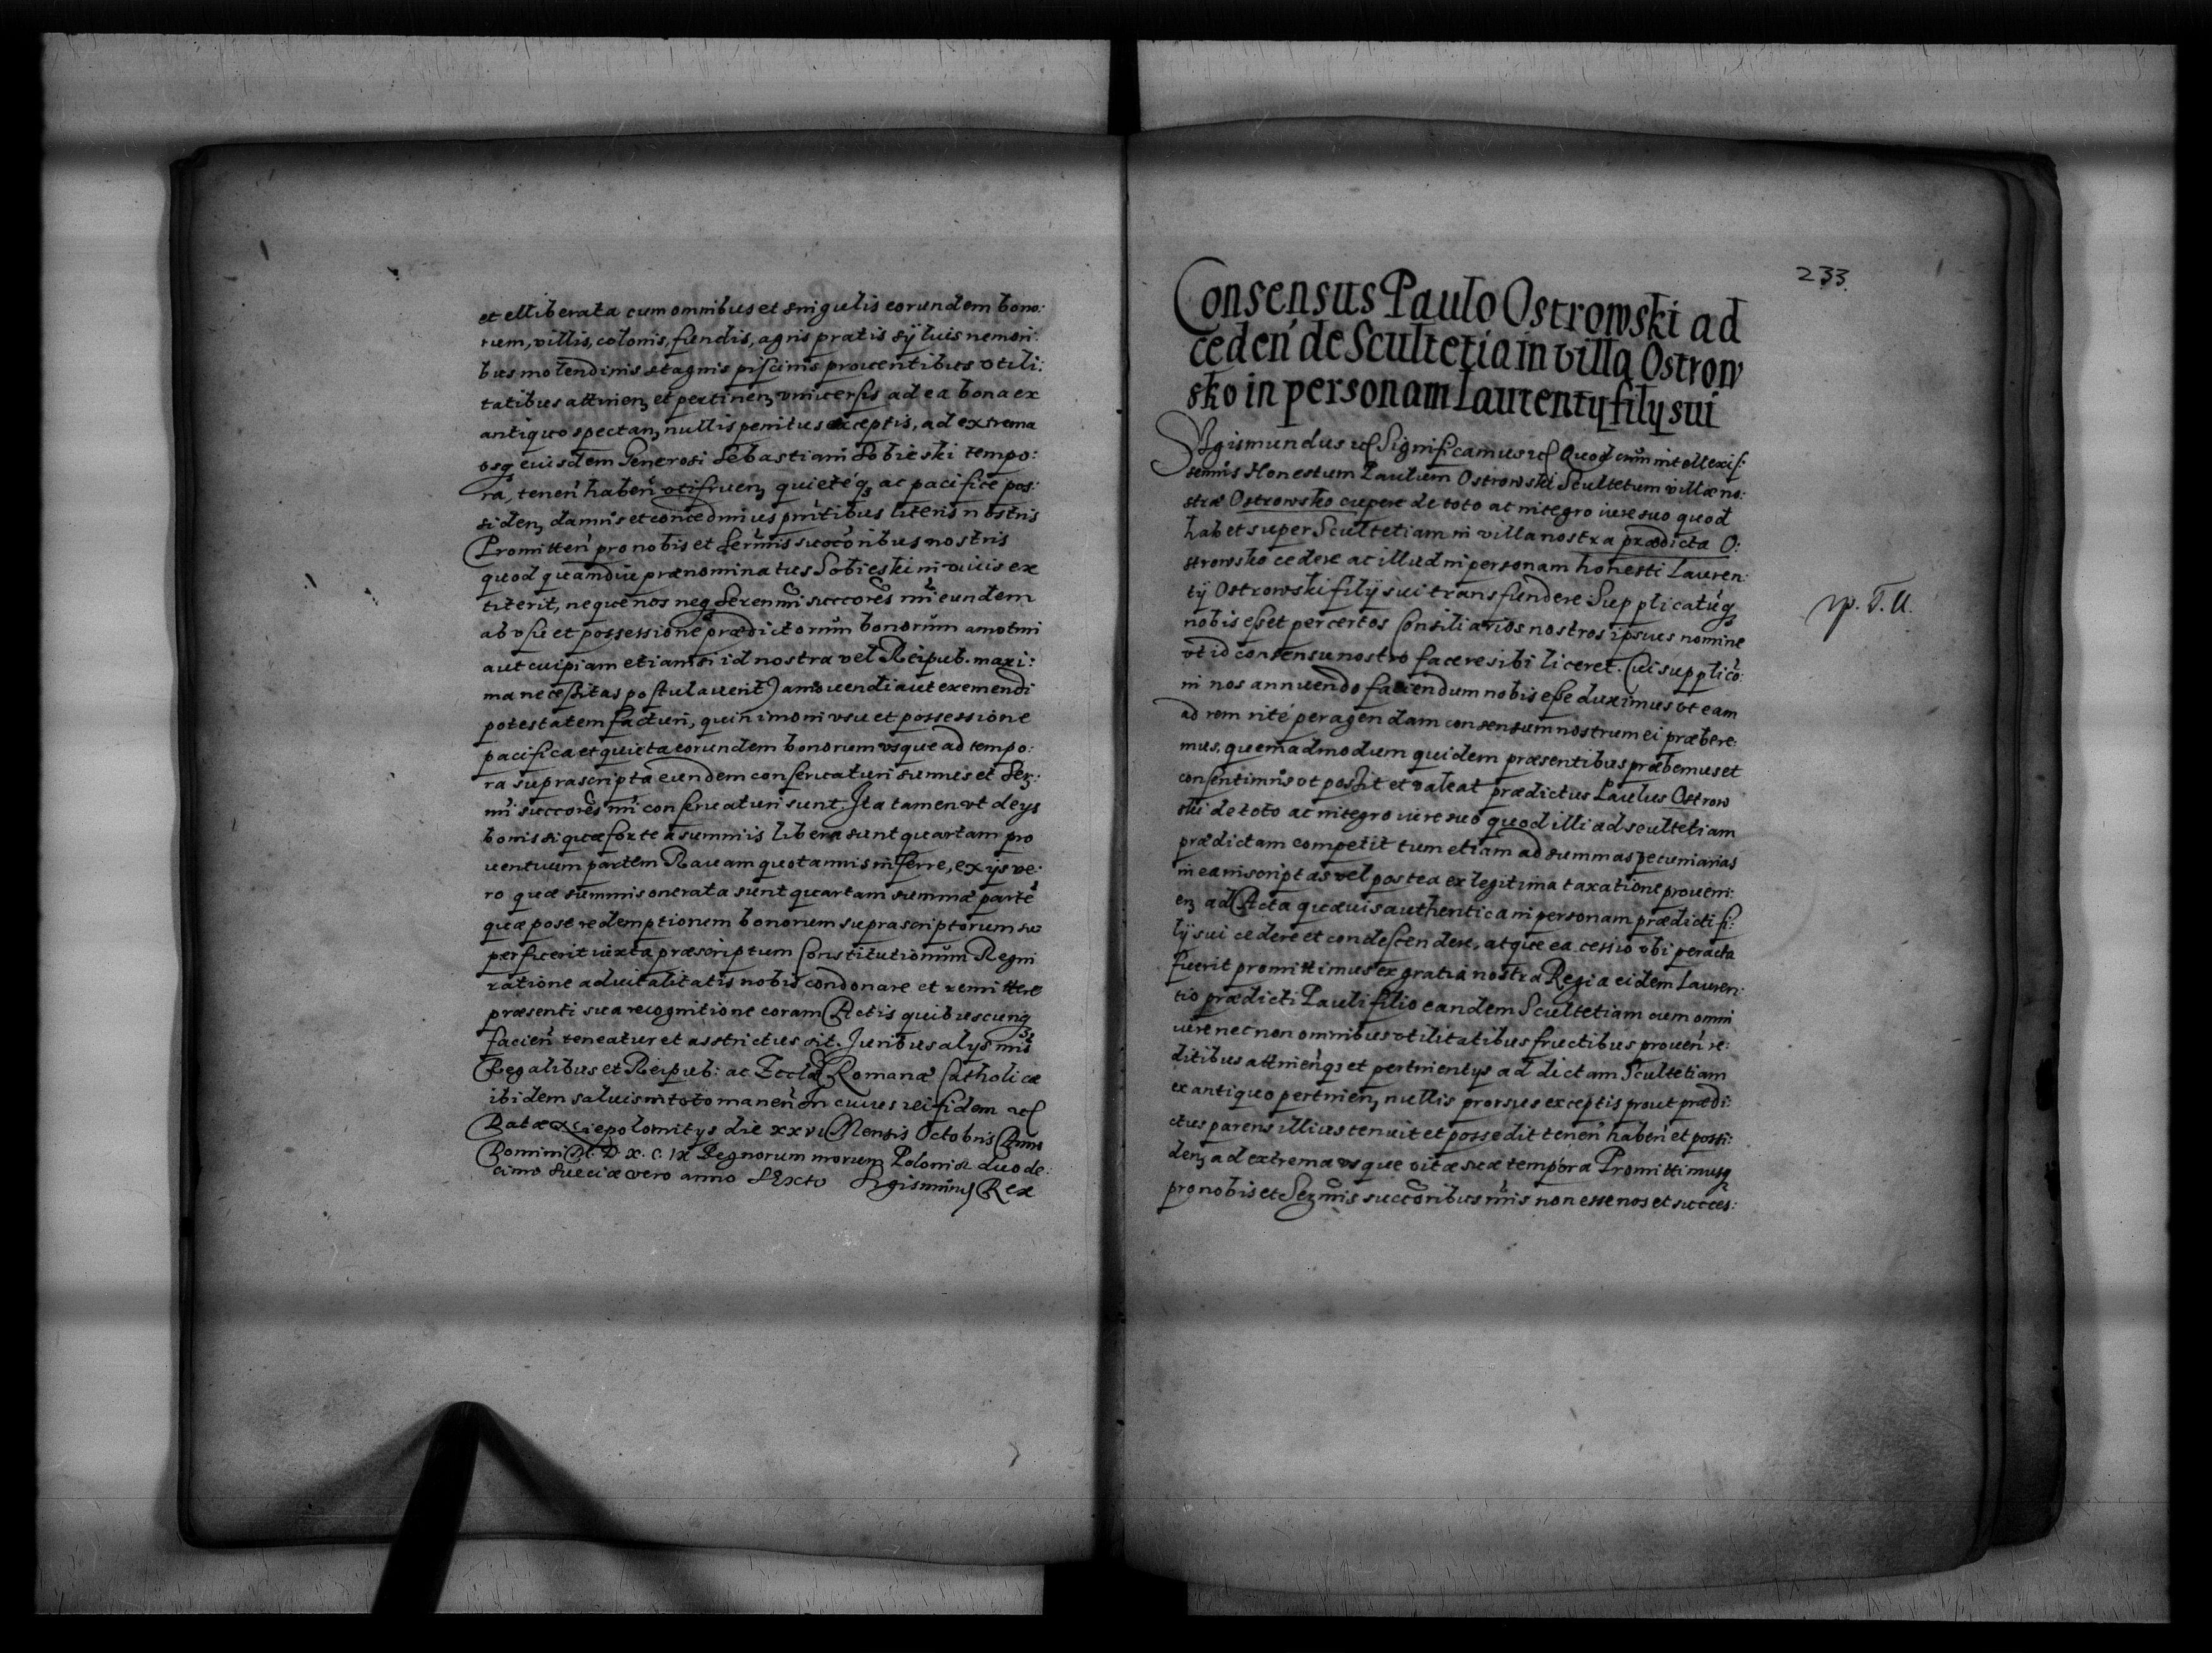 et elliberata cum omnibus et singulis eorundem bono:
rum, villis, colonis, fundis, agris pratis syluis nemori:
bus molendinis stagnis piscinis prouentibus vtili:
tatibus attinen, et pertinen, vniuersis ad ea bona ex
antiquo spectan, nullis penitus exceptis, ad extrema
osq eiusdem Generosi Sebastiani Sobieski tempo:
ra, tenen haben vtifruen, quieté q, ac pacifice pos:
siden, damus et concedimus pntibus literis nostris
Promitten pro nobis et Sermis succoribus nostris
quod quandiu prænominatus Sobieski in viuis ex
titerit, neque nos neq Serenmi succores nri eundem
ab vsu et possessione prædictorum bonorum amoturi
aut cuipiam etiamsi id nostra vel Reipub. maxi:
ma necessitas postulauerit) amouendi aut exemendi
potestatem facturi, quin imo in vsu et possessione
pacifica et quieta eorundem bonorum vsque ad tempo:
ra suprascripta eundem conseruaturi sumus et Ser:
mi succores nri conseruaturi sunt. Ita tamen vt de ys
bonis si quæ forte a summis libera sunt quartam pro
uentuum partem Rauam quotannis inferre, ex ijs ve:
ro quæ summis onerata sunt quartam summæ parte
quæ post redemptionem bonorum suprascriptorum su
perfuerit iuxta præscriptum Constitutionum Regni
ratione aduitalitatis nobis condonare et remittere
præsenti sua recognitione coram Actis quibuscunq
facien teneatur et asstrictus sit. Juribus alys nris
Regalibus et Reipub: ac Eccla Romanæ Catholicæ
ibidem saluis in toto manen In cuius rei fidem etc
Datæ Niepolomitys die XXVI Mensis Octobris Anno
Domini M. D. X. C. IX Regnorum nrorum Poloniæ duode:
cimo Sueciæ vero anno sexto Sigismundus Rex
233.
Consensus Paulo Ostrowski ad
ceden de Scultetia in villa Ostrow
sko in personam Laurenty fily sui
Sigismundus etc Significamus etc Quod cum intellexis:
semus Honestum Paulum Ostrowski Scultetum villæ no:
stræ Ostrowsko cupere de toto ac integro iure suo quod
habet super Scultetiam in villa nostra prædicta O:
strowsko cedere ac illud in personam honesti Lauren:
tÿ Ostrowski filÿ sui transfundere Supplicatuq
nobis esset per certos Consiliarios nostros ipsius nomine
vt id consensu nostro facere sibi liceret. Cui supplico:
ni nos annuendo faciendum nobis esse duximus vt eam
ad rem rité peragendam consensum nostrum ei præbere:
mus, quemadmodum quidem præsentibus præbemus et
consentimus vt possit et valeat prædictus Paulus Ostrow
ski de toto ac integro iure suo quod illi ad scultetiam
prædictam competit tum etiam ad summas pecuniarias
in ea inscriptas vel postea ex legitima taxatione proueni:
en, ad Acta quæuis authentica in personam prædicti fi:
lÿ sui cedere et condescendere, atque ea cessio vbi peracta
fuerit promittimus ex gratia nostra Regia eidem Lauren:
tio prædicti Pauli filio eandem Scultetiam cum omni
iure nec non omnibus vtilitatibus fructibus prouen re:
ditibus attinenq et pertinentys ad dictam Scultetiam
ex antiquo pertinen, nullis prorsus exceptis prout prædi:
ctus parens illius tenuit et possedit tenen haben et possi:
den, ad extrema vsque vitæ suæ tempora Promittimusq
pro nobis et Sermis succoribus nris non esse nos et succes: